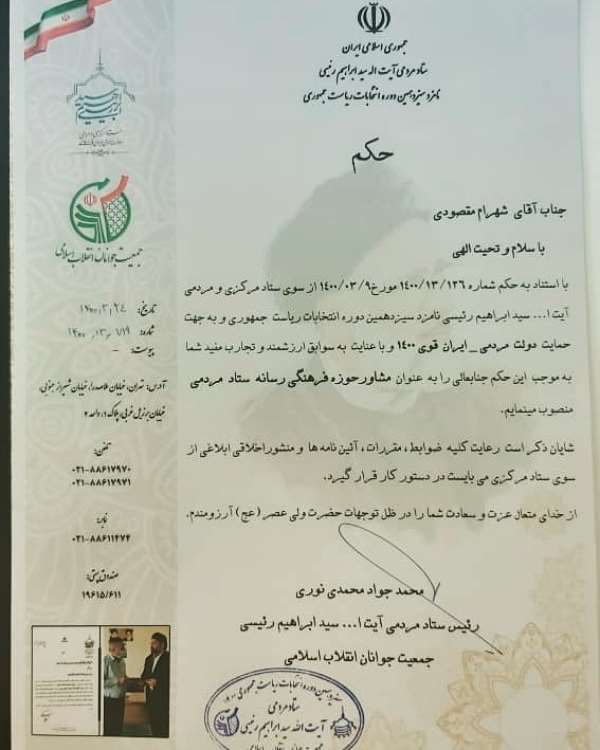 جمهوری اسلامی ایران
ستاد مردمی آیت اله سید ابراهیم رئیسی
نامزد سیزدهمین دوره انتخابات ریاست جمهوری
حکم
جناب آقای شهرام مقصودی
با سلام و تحیت الهی
با استناد به حکم شماره ۱۴۰۰/۱۳/۱۲۶ مورخ ۱۴۰۰/۰۳/۹ از سوی ستاد مرکزی و مردمی
آیت ا... سید ابراهیم رئیسی نامزد سیزدهمین دوره انتخابات ریاست جمهوری و به جهت
حمایت دولت مردمی _ ایران قوی ۱۴۰۰ و با عنایت به سوابق ارزشمند و تجارب مفید شما
به موجب این حکم جنابعالی را به عنوان مشاور حوزه فرهنگی رسانه ستاد مردمی
منصوب مینمایم.
شایان ذکر است رعایت کلیه ضوابط، مقررات، آئین نامه ها و منشور اخلاقی ابلاغی از
سوی ستاد مرکزی می بایست در دستور کار قرار گیرد.
از خدای متعال عزت و سعادت شما را در ظل توجهات حضرت ولی عصر (عج) آرزومندم.
محمد جواد محمدی نوری
رئیس ستاد مردمی آیت ا... سید ابراهیم رئیسی
جمعیت جوانان انقلاب اسلامی
سیزدهمین دوره انتخابات ریاست جمهوری
ستاد مردمی
آیت الله سید ابراهیم رئیسی
جمعیت جوانان انقلاب اسلامی
جمعیت جوانان انقلاب اسلامی
تاریخ: ۱۴۰۰/۰۳/۲۴
شماره:
پیوست: -
آدرس: تهران، خیابان ملاصدرا، خیابان شیراز جنوبی،
خیابان برزیل غربی، پلاک ۱، واحد ۲
تلفن:
۰۲۱-۸۸۶۱۷۹۷۰
۰۲۱-۸۸۶۱۷۹۷۱
نمابر:
۰۲۱-۸۸۶۱۱۴۷۴
صندوق پستی:
۱۹۶۱۵/۶۱۱